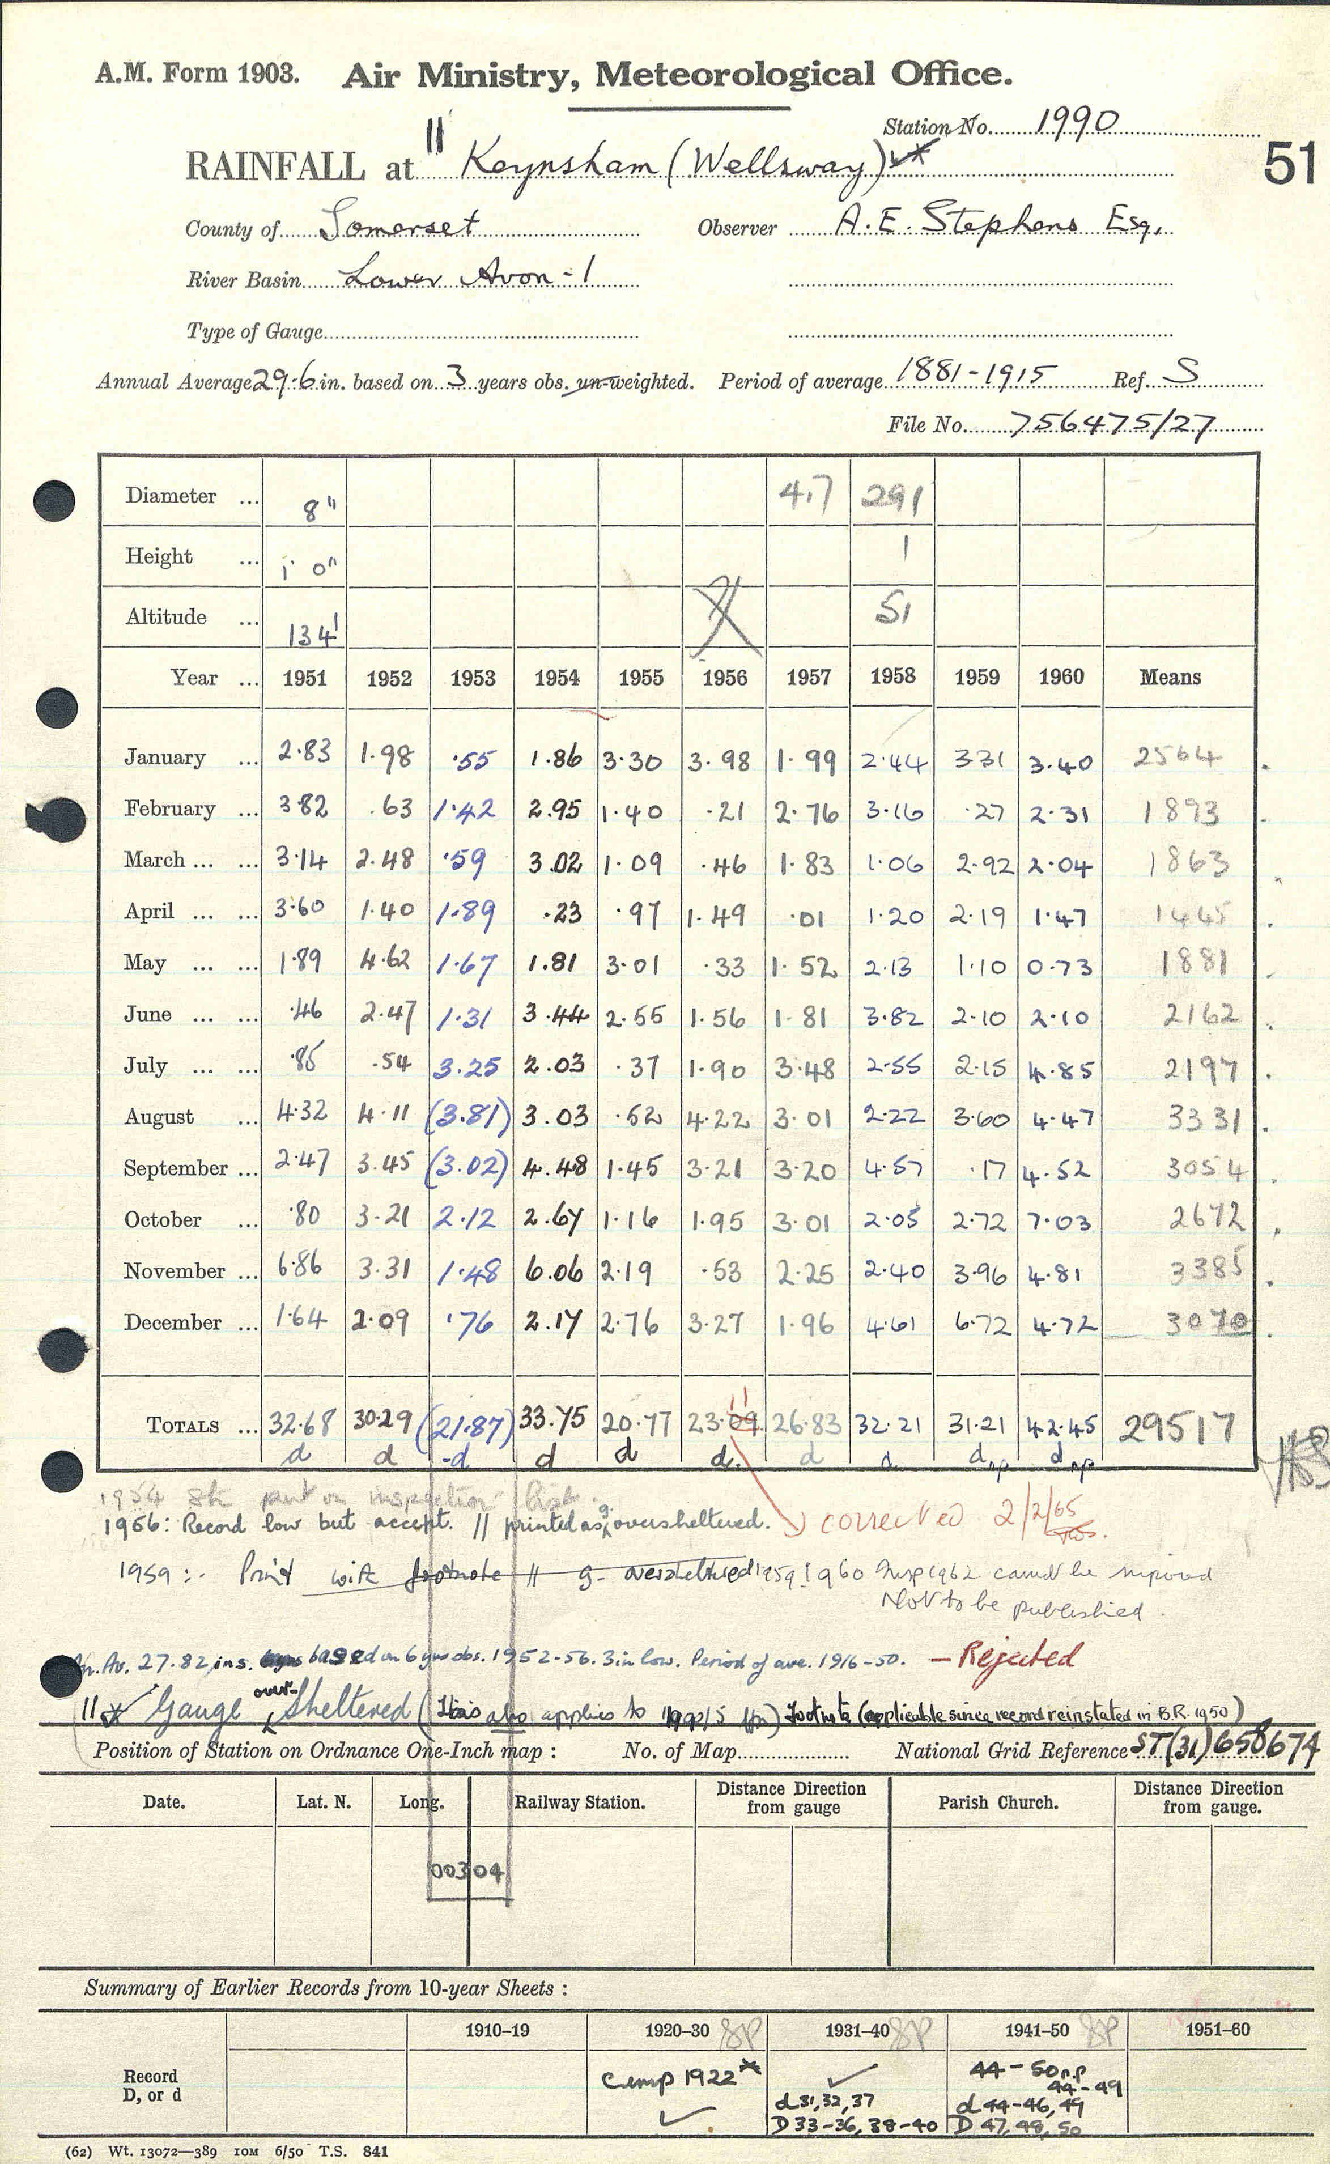 A.M. Form 1903. Air Ministry, Meteorological Office.
Station No. 1990
RAINFALL at " Keynsham (Wellsway) 51
County of Somerset Observer A. E. Stephens Esq.
River Basin Lower Avon - 1
Type of Gauge
Annual Average 29.6 in. based on 3 years obs. un-weighted. Period of average 1881-1915 Ref. S
File No. 756475/27
Diameter ... 8" 4.7 291
Height ... 1' 0" 1
Altitude ... 134' 51
Year ... 1951 1952 1953 1954 1955 1956 1957 1958 1959 1960 Means
January ... 2.83 1.98 .55 1.86 3.30 3.98 1.99 2.44 3.31 3.40 2564
February ... 3.82 .63 1.42 2.95 1.40 .21 2.76 3.16 .27 2.31 1893
March ... ... 3.14 2.48 .59 3.02 1.09 .46 1.83 1.06 2.92 2.04 1863
April ... ... 3.60 1.40 1.89 .23 .97 1.49 .01 1.20 2.19 1.47 1445
May ... ... 1.89 4.62 1.67 1.81 3.01 .33 1.52 2.13 1.10 0.73 1881
June ... ... .46 2.47 1.31 3.44 2.55 1.56 1.81 3.82 2.10 2.10 2162
July ... ... .85 .54 3.25 2.03 .37 1.90 3.48 2.55 2.15 4.85 2197
August ... 4.32 4.11 (3.81) 3.03 .52 4.22 3.01 2.22 3.60 4.47 3331
September ... 2.47 3.45 (3.02) 4.48 1.45 3.21 3.20 4.57 .17 4.52 3054
October ... .80 3.21 2.12 2.67 1.16 1.95 3.01 2.05 2.72 7.03 2672
November ... 6.86 3.31 1.48 6.06 2.19 .53 2.25 2.40 3.96 4.81 3385
December ... 1.64 2.09 .76 2.17 2.76 3.27 1.96 4.61 6.72 4.72 3070
11
TOTALS ... 32.68 30.29 (21.87) 33.75 20.77 23.09 26.83 32.21 31.21 42.45 29517
d d d d d d. d d. d np d np
1954 Stn put on inspection list.
1956: Record low but accept. || printed as g. oversheltered. corrected 2/2/65
1959:- Print with footnote || g- oversheltered 1959, 1960 Insp 1962 cannot be
Not to be published.
Av. 27.82 ins. based on 6 yrs obs. 1952-56. 3 in low. Period of ave. 1916-50. - Rejected
|| Gauge over-sheltered (This also applies to 1990/5 ) Footnote (applicable since record reinstated in B.R. 1950)
Position of Station on Ordnance One-Inch map : No. of Map National Grid Reference ST(31) 658674
Date. Lat. N. Long. Railway Station. Distance Direction from gauge Parish Church. Distance Direction from gauge.
00304
Summary of Earlier Records from 10-year Sheets :
1910–19 1920–30 SP 1931–40 SP 1941–50 SP 1951–60
Record D, or d
comp 1922*
d 31, 32, 37
D 33-36, 38-40
44-50 n.p
44-49
d 44-46, 49
D 47, 48, 50
(62) Wt. 13072—389 10M 6/50 T.S. 841